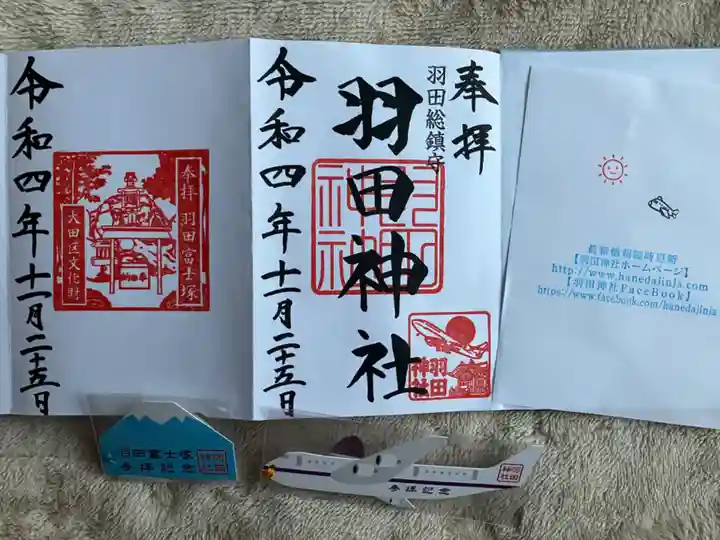 奉拝
羽田総鎮守
羽田神社
令和四年十一月二十五日
羽田神社
奉拝 羽田富士塚
大田区文化財
令和四年十一月二十五日
最新情報随時更新
【羽田神社ホームページ】
http://www.hanedajinja.com
【羽田神社FaceBook】
https://www.facebook.com/hanedajinja
羽田富士塚
参拝記念
羽田神社
参拝記念
羽田神社